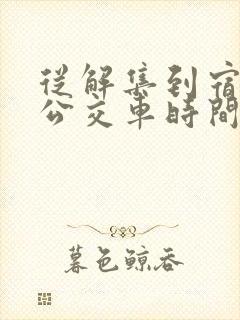 從解集到宿
公交車時間
暮色鯨吞